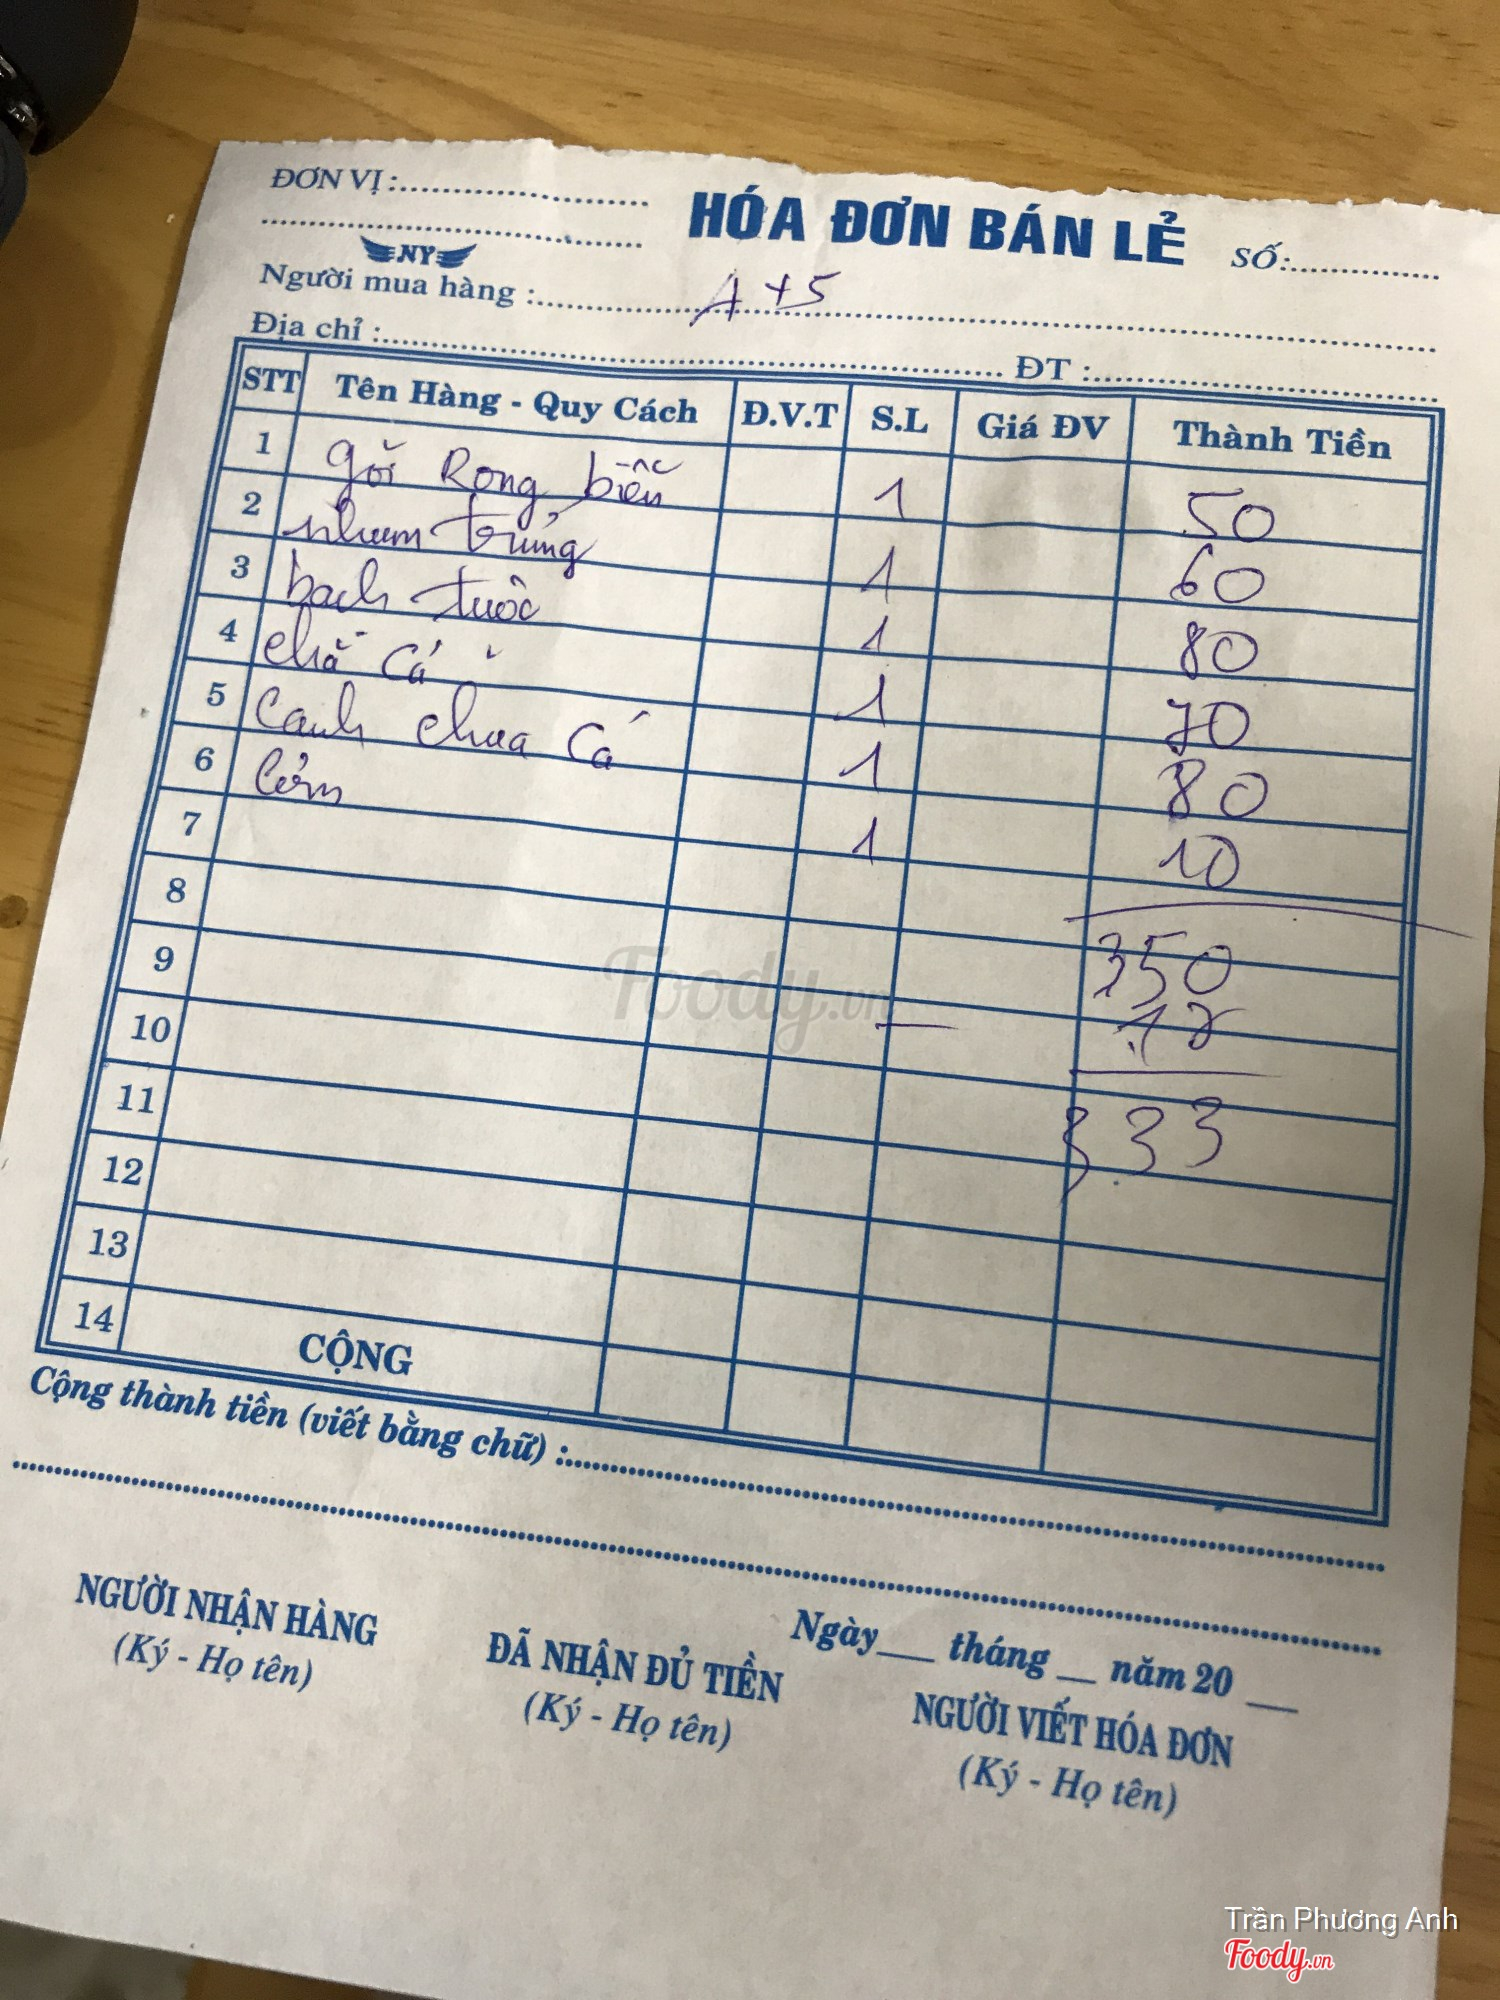 ĐƠN VỊ :
HÓA ĐƠN BÁN LẺ
SỐ:
NY
Người mua hàng : A+5
Địa chỉ : ĐT :
STT Tên Hàng - Quy Cách Đ.V.T S.L Giá ĐV Thành Tiền
1 gỏi Rong biển 1 50
2 nhum trứng 1 60
3 bạch tuộc 1 80
4 chả cá 1 70
5 canh chua cá 1 80
6 cơm 1 10
7
8 350
9
10 333
11
12
13
14 CỘNG
Cộng thành tiền (viết bằng chữ) :
Ngày tháng năm 20
NGƯỜI NHẬN HÀNG ĐÃ NHẬN ĐỦ TIỀN NGƯỜI VIẾT HÓA ĐƠN
(Ký - Họ tên) (Ký - Họ tên) (Ký - Họ tên)
Foody.vn
Trần Phương Anh
Foody.vn